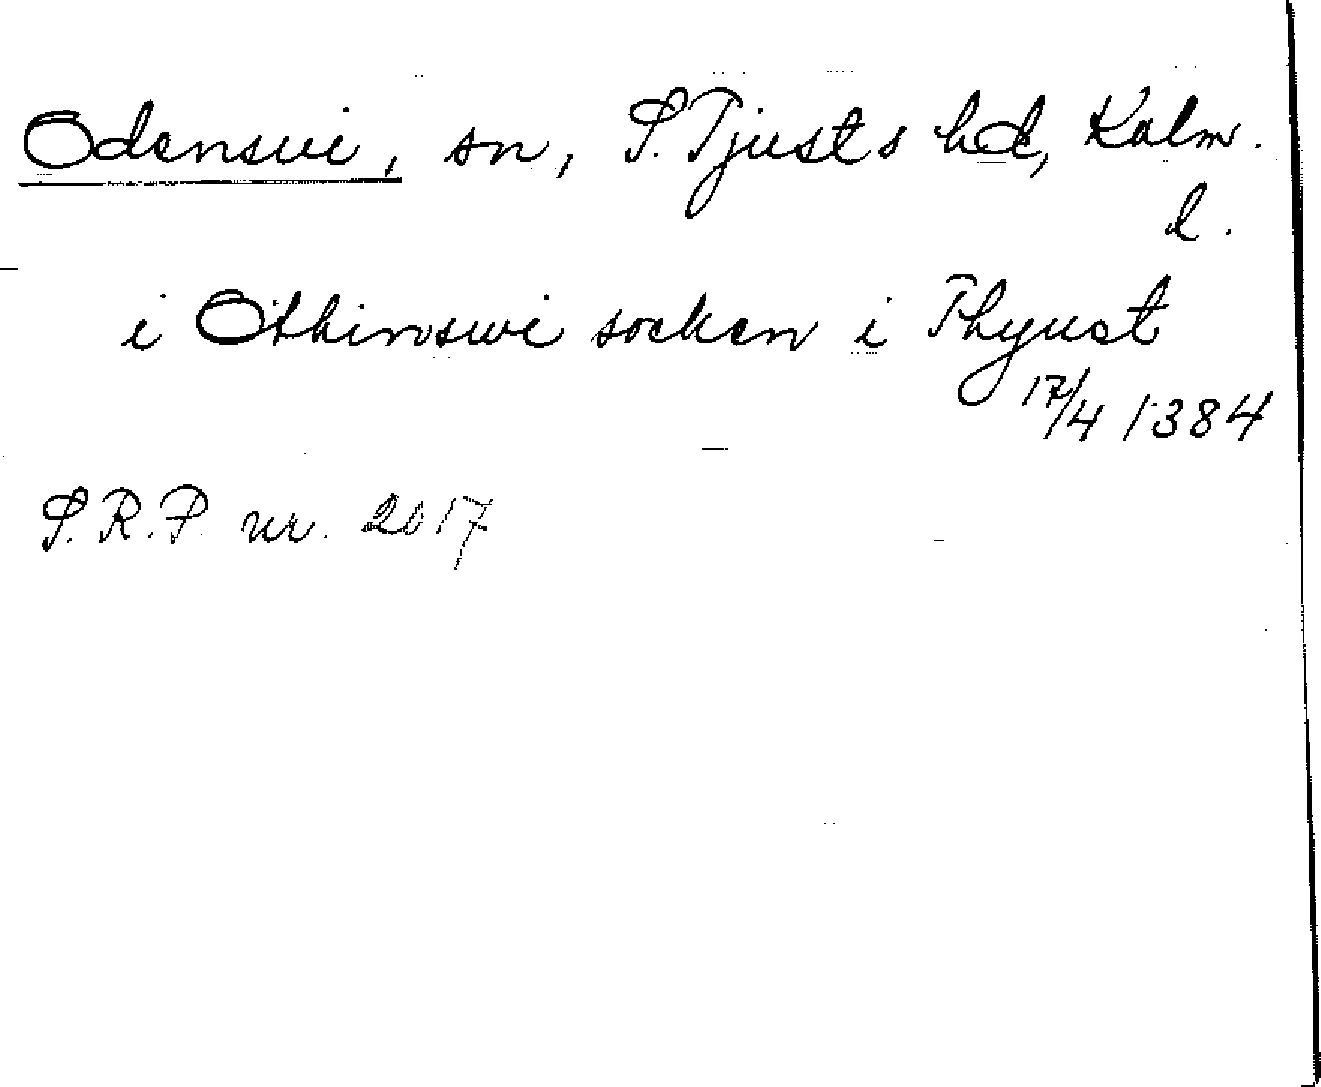 Odensvi, sn, S. Tjusts hd, Kalm.
l.
i Othinswi socken i Thyust
17/4 1384
S.R.P. nr. 2017